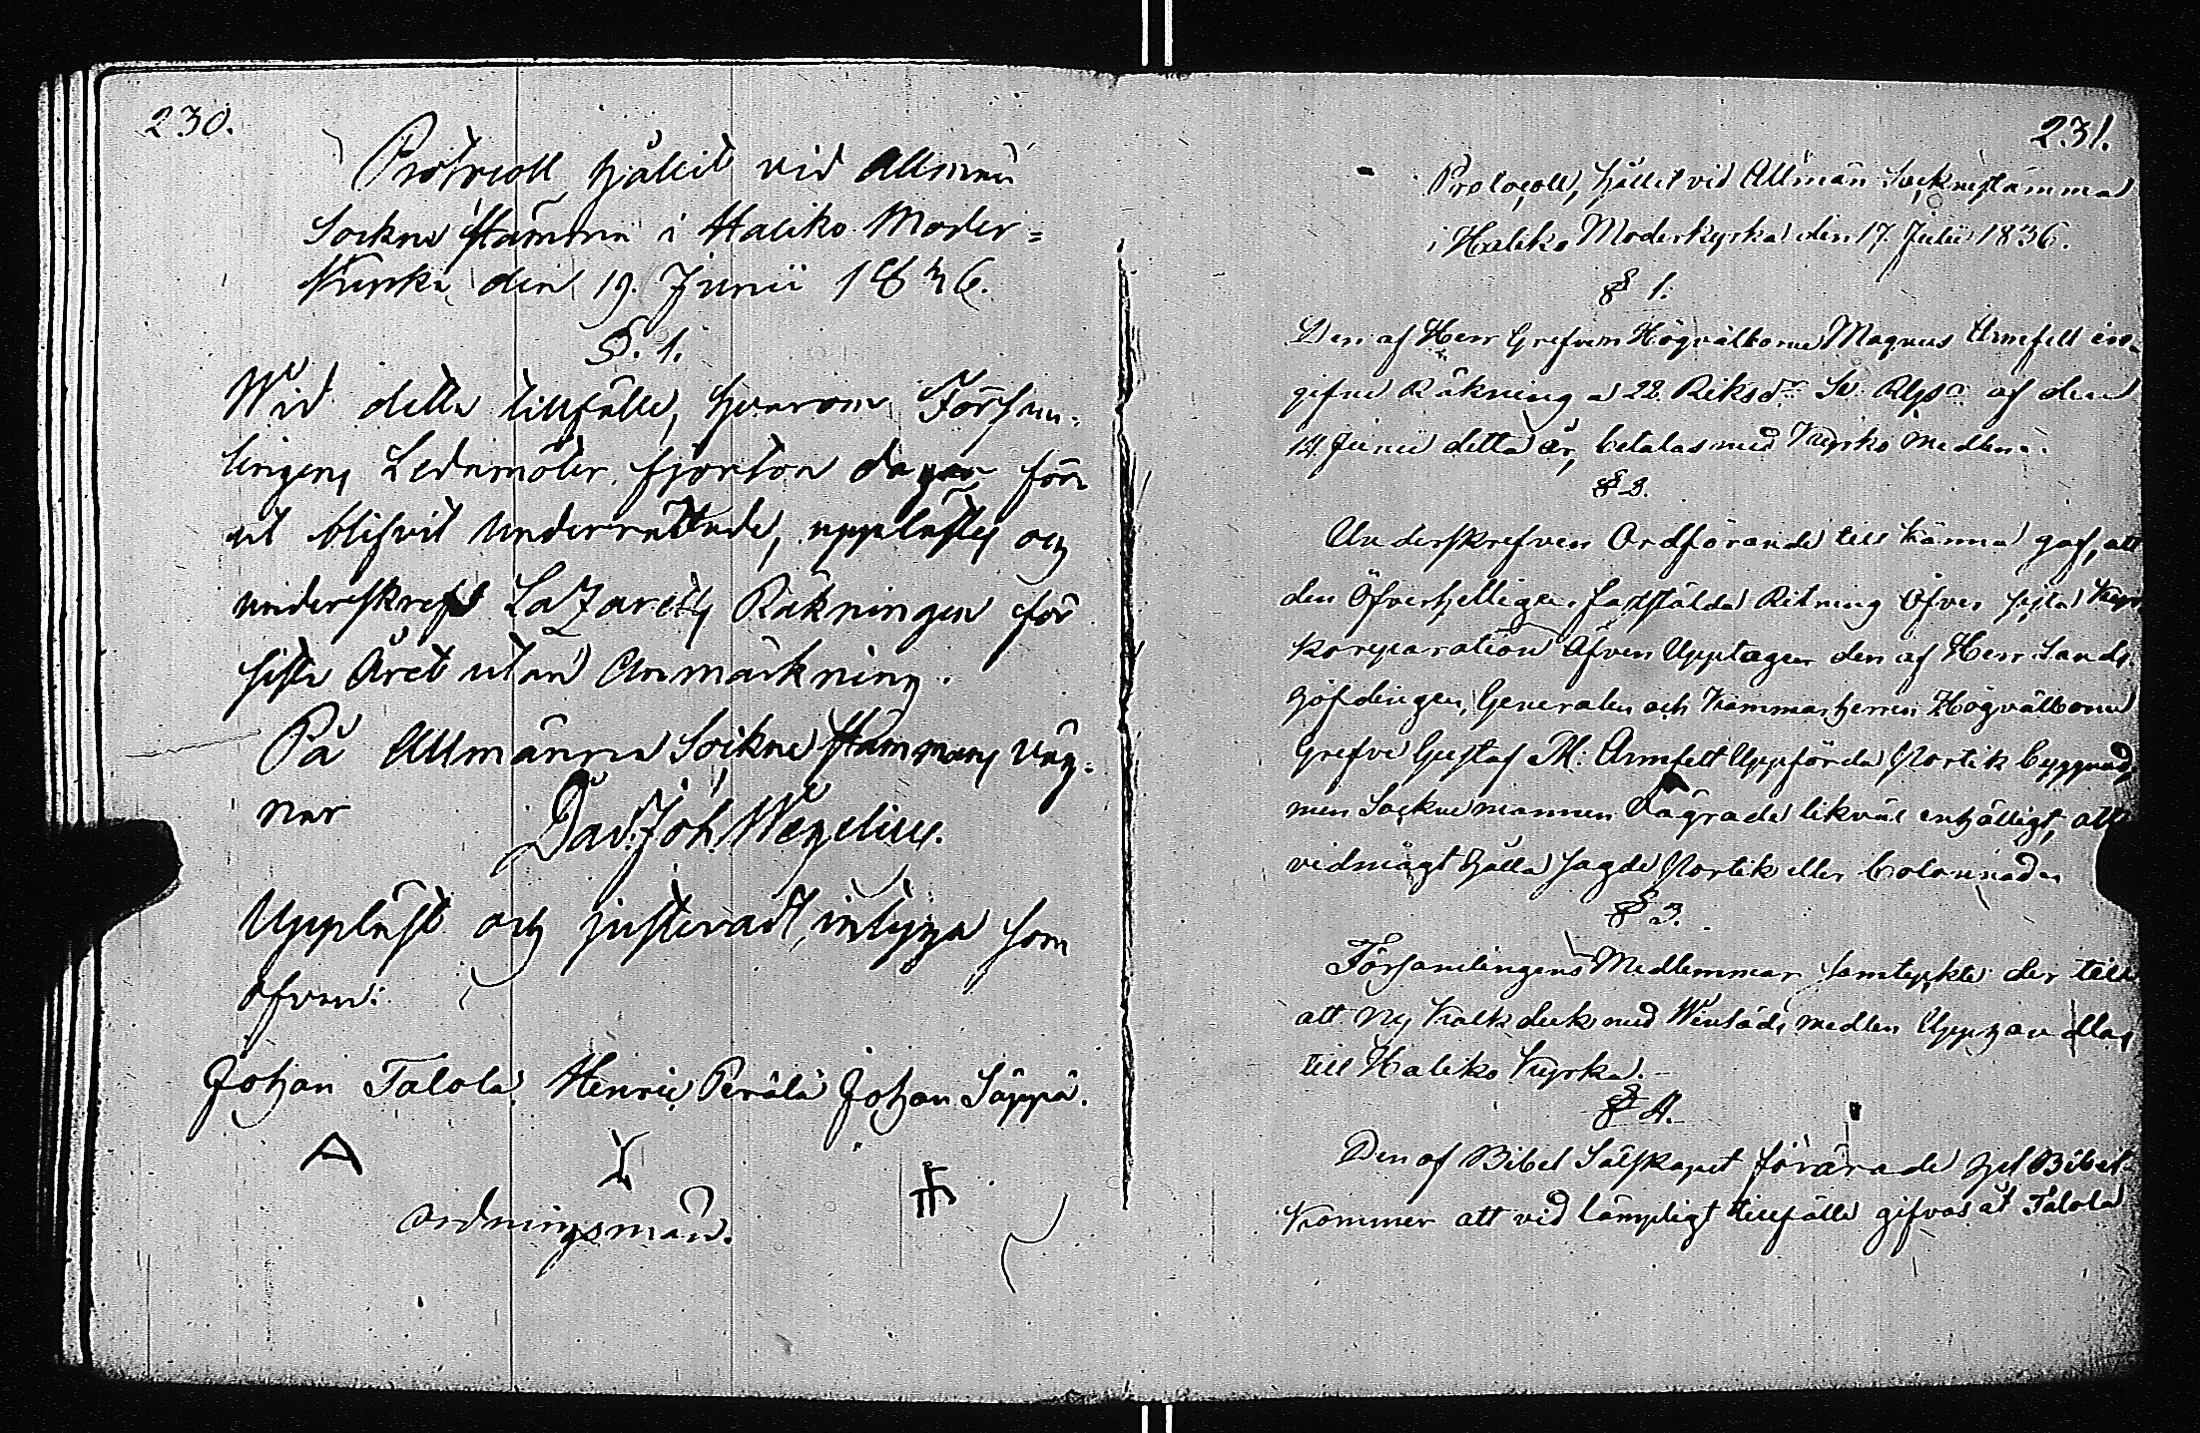 230.
Protocoll, hållit vid Allmän
Sockne Stämma i Haliko Moder=
Kyrka den 19. Junii 1836.
§. 1.
Wid detta tillfälle, hvarom Försam-
lingens Ledamöter fjorton dagarför
ut blifvit underrättade, upplästes och
underskrefs Lazaretts Räkningen för
sista Året utan Anmärkning.
På Allmänna Sockne Stämmans väg-
nar
Dav. Joh. Wegelius.
Uppläst och justeradt, intyga som
ofvan:
Johan Talola. Henric Perälä Johan Säppä.
ordningsmän.
231.
Protocoll, hållit vid Allmän Socknestämma
i Haliko Moderkyrka den 17. Julii 1836.
§ 1.
Den af Herr Grefven Högvälborne Magnus Armfelt in-
gifne Räkning a 28 Riksd. Sv. Rgs af den
14 Junii detta år, betalas med Kyrko Medlen.
§ 2.
Underskrefven Ordförande till känna gaf, att
den Öfverhetligen fastställda Ritning öfver sista Kyr
koreparation äfven Upptager den af Herr Lands-
höfdingen, Generalen och Kammarherren Högvälborne
Grefve Gustaf M: Armfelt Uppförda Portik byggnad,
men Sockne mannen vägrade likväl enhälligt, att
vidmagt hålla sagde Portik eller Colonnade.
§ 3.
Församlingens Medlemmar samtyckte der till
att ny Kalk duk med Winsäds medlen Upphandlas
till Haliko Kyrka.
§ 4.
Den af Bibel Sälskapet förärade hel Bibel
Kommer att vid lämpligt tillfälle gifvas åt Talola